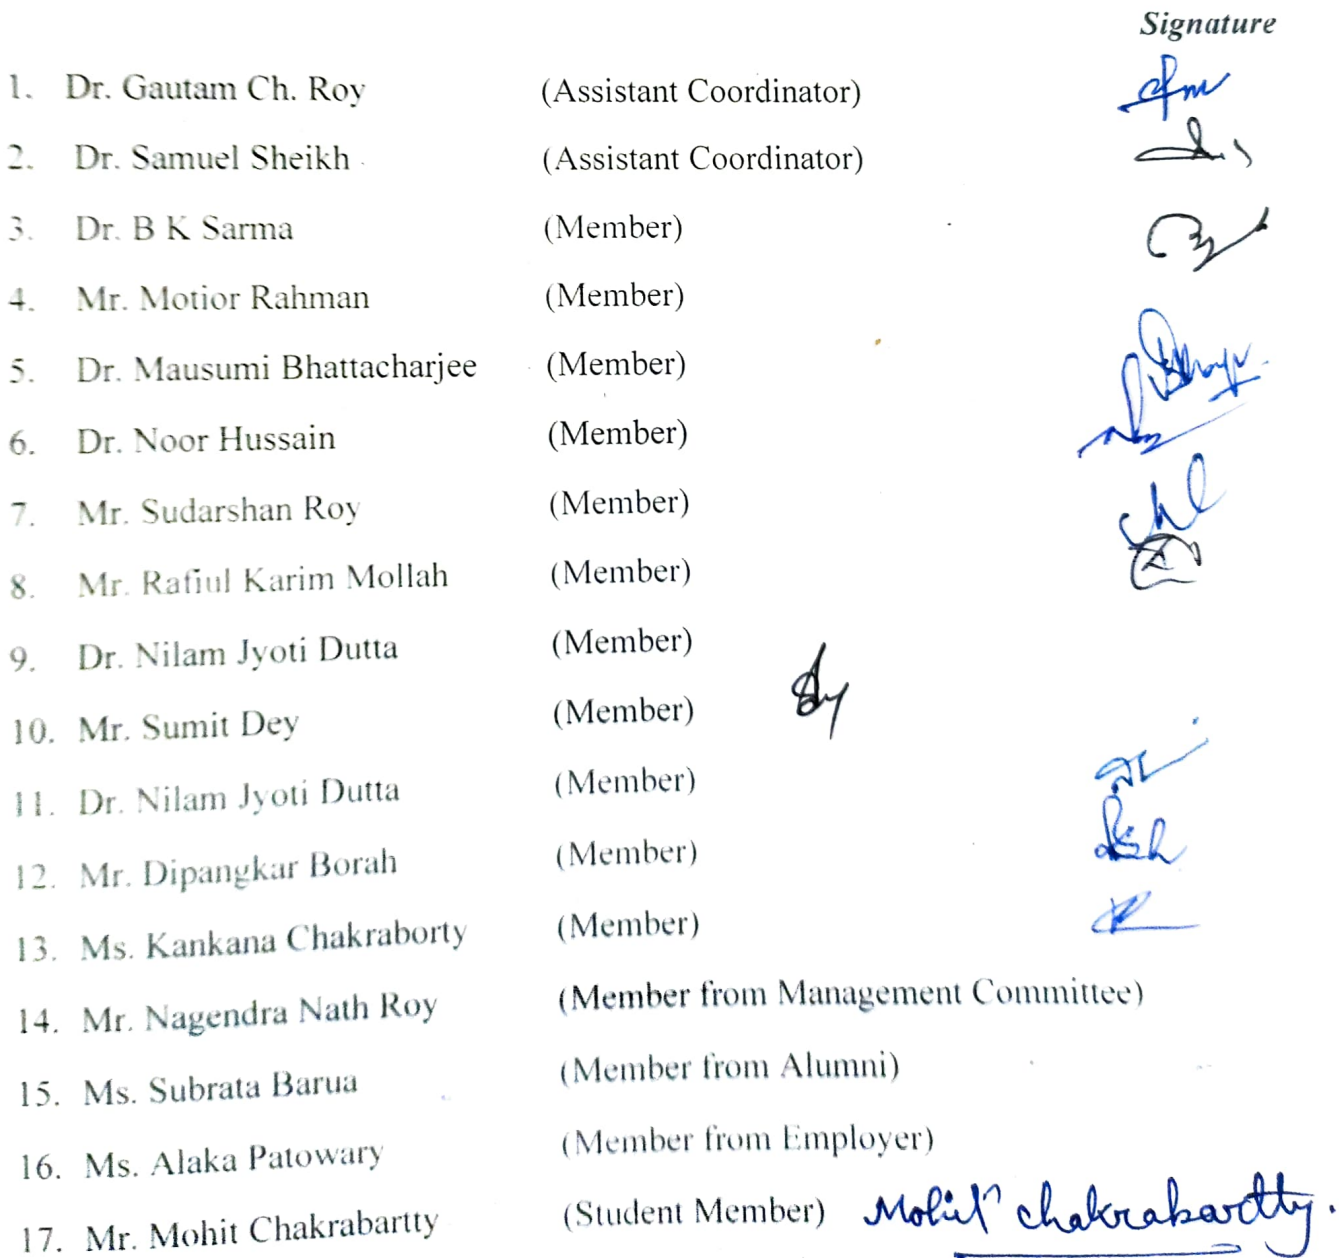 Signature
1. Dr. Gautam Ch. Roy (Assistant Coordinator)
2. Dr. Samuel Sheikh (Assistant Coordinator)
3. Dr. B K Sarma (Member)
4. Mr. Motior Rahman (Member)
5. Dr. Mausumi Bhattacharjee (Member)
6. Dr. Noor Hussain (Member)
7. Mr. Sudarshan Roy (Member)
8. Mr. Rafiul Karim Mollah (Member)
9. Dr. Nilam Jyoti Dutta (Member)
10. Mr. Sumit Dey (Member)
11. Dr. Nilam Jyoti Dutta (Member)
12. Mr. Dipangkar Borah (Member)
13. Ms. Kankana Chakraborty (Member)
14. Mr. Nagendra Nath Roy (Member from Management Committee)
15. Ms. Subrata Barua (Member from Alumni)
16. Ms. Alaka Patowary (Member from Employer)
17. Mr. Mohit Chakrabartty (Student Member) Mohit Chakrabartty.